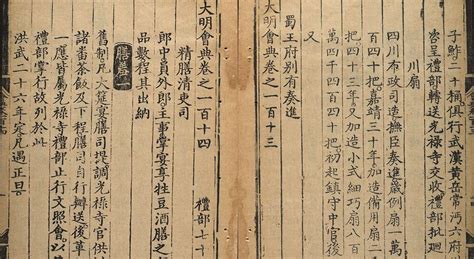 子鮓一十桶俱行武漢黃岳常沔六府
咨呈禮部轉送光祿寺交收禮部批廻
川扇
四川布政司撫臣奏進歲例扇一萬
百四十把嘉靖三十年加造備用扇二
把四十三年又加造小式細巧扇八百
萬四千四百二十把初起鎮守中官後
又
蜀王府别有奏進
大明會典卷之一百十三
大明會典卷之一百十四
禮部七十
精膳清吏司
郎中員外郎主事掌宴享牲豆酒膳之
品數程其出納
膳羞一
舊制凡大筵宴膳司提調光祿寺官供
諸番茶飯及下程膳司自行辦送後
一應皆屬光祿寺禮部止行文照會以
禮部掌行故列於此
洪武二十六年定凡遇正旦